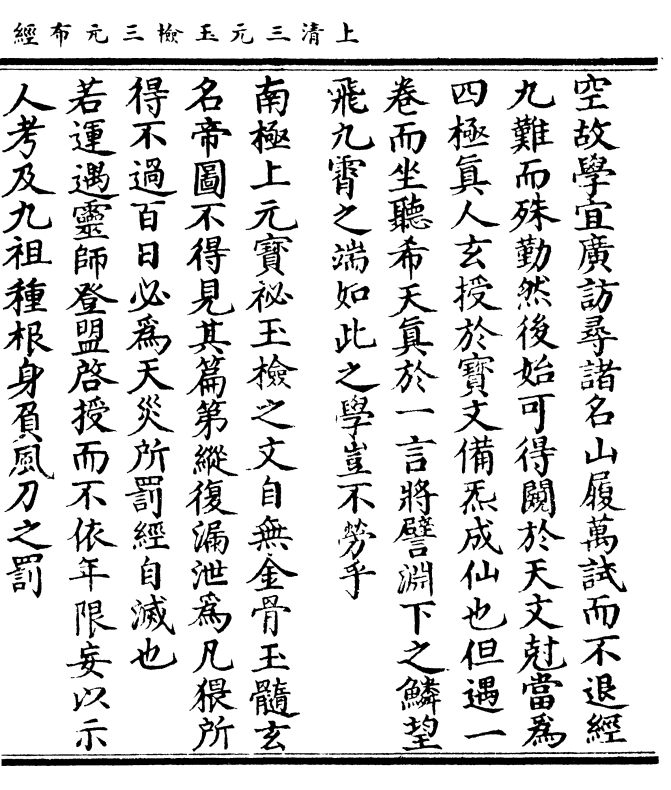 上清三元玉檢三元布經
空故學宜廣訪尋諸名山履萬試而不退經
九難而殊勤然後始可得闚於天文尅當為
四極真人玄授於寶文備炁成仙也但遇一
卷而坐聽希天真於一言將譬淵下之鱗望
飛九霄之端如此之學豈不勞乎
南極上元寶祕玉檢之文自無金骨玉髓玄
名帝圖不得見其篇第縱復漏泄為凡猥所
得不過百日必為天災所罰經自滅也
若運遇靈師登盟啓授而不依年限妄以示
人考及九祖種根身負風刀之罰